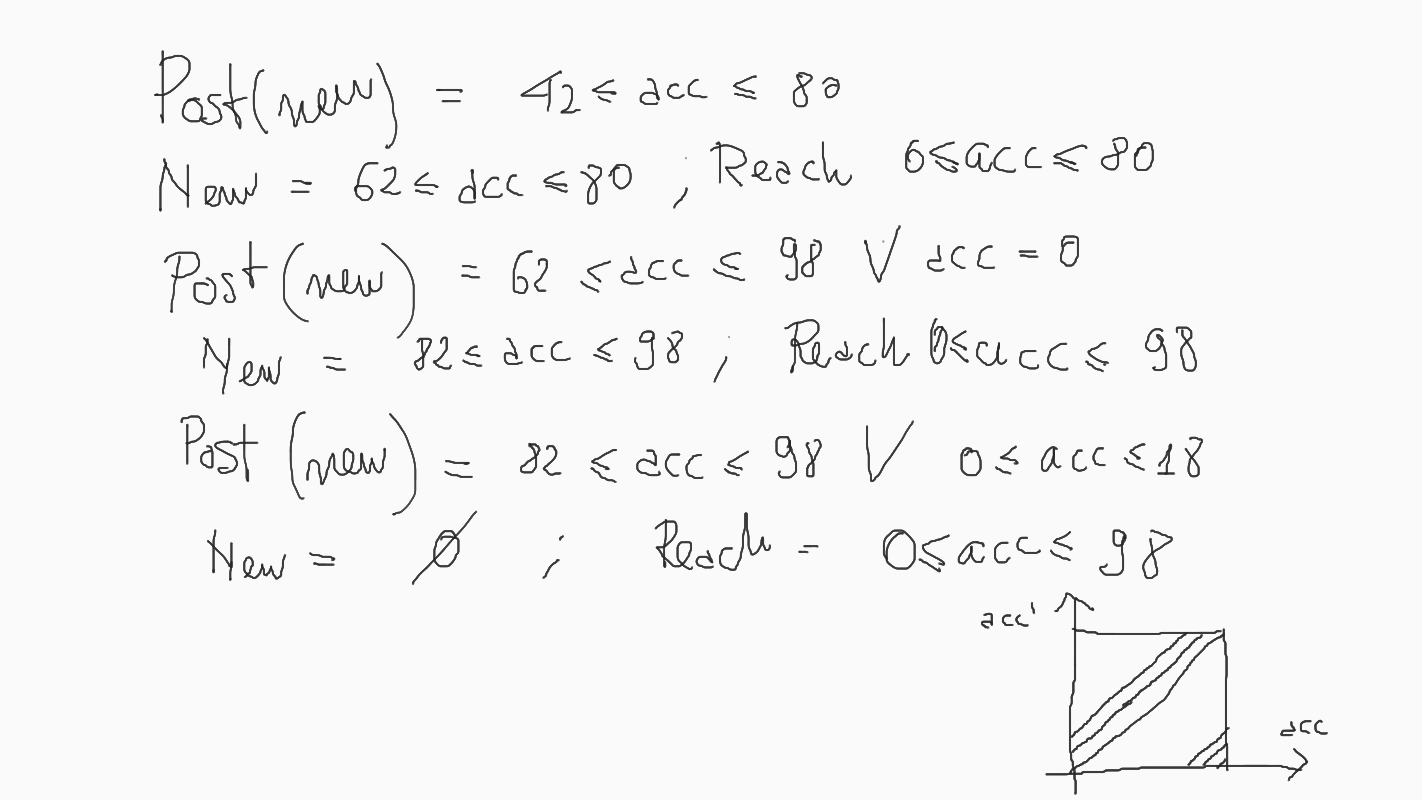 Post(new) = 42 ≤ acc ≤ 80
New = 62 ≤ acc ≤ 80 , Reach 0 ≤ acc ≤ 80
Post(new) = 62 ≤ acc ≤ 98 V acc = 0
New = 82 ≤ acc ≤ 98 ; Reach 0 ≤ acc ≤ 98
Post (new) = 82 ≤ acc ≤ 98 V 0 ≤ acc ≤ 18
New = ∅ ; Reach = 0 ≤ acc ≤ 98
acc'
acc